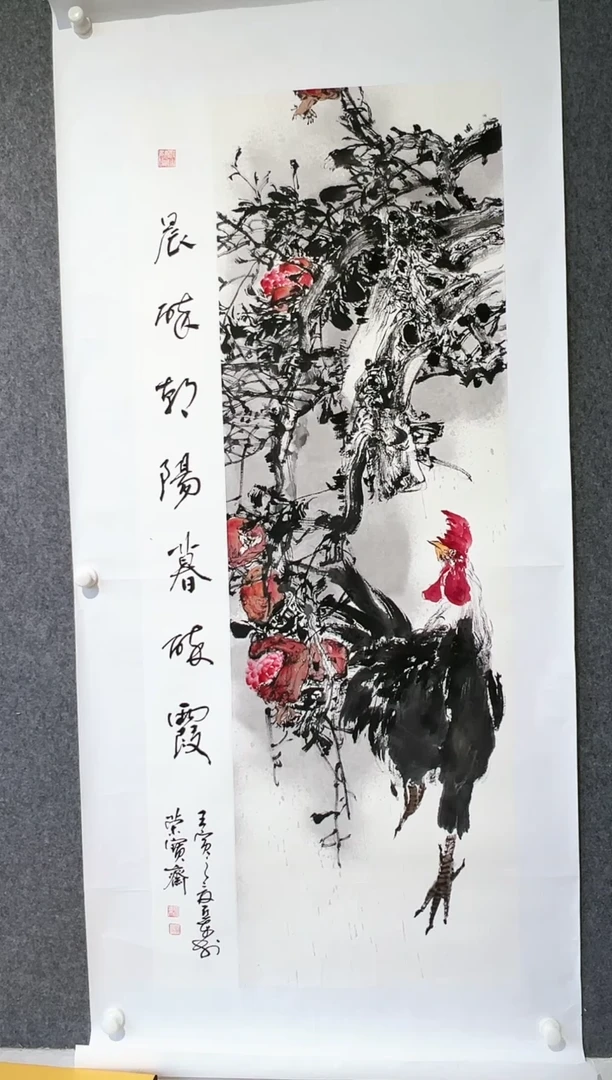 晨醉朝陽暮醉霞
壬寅之夏
榮寶齋